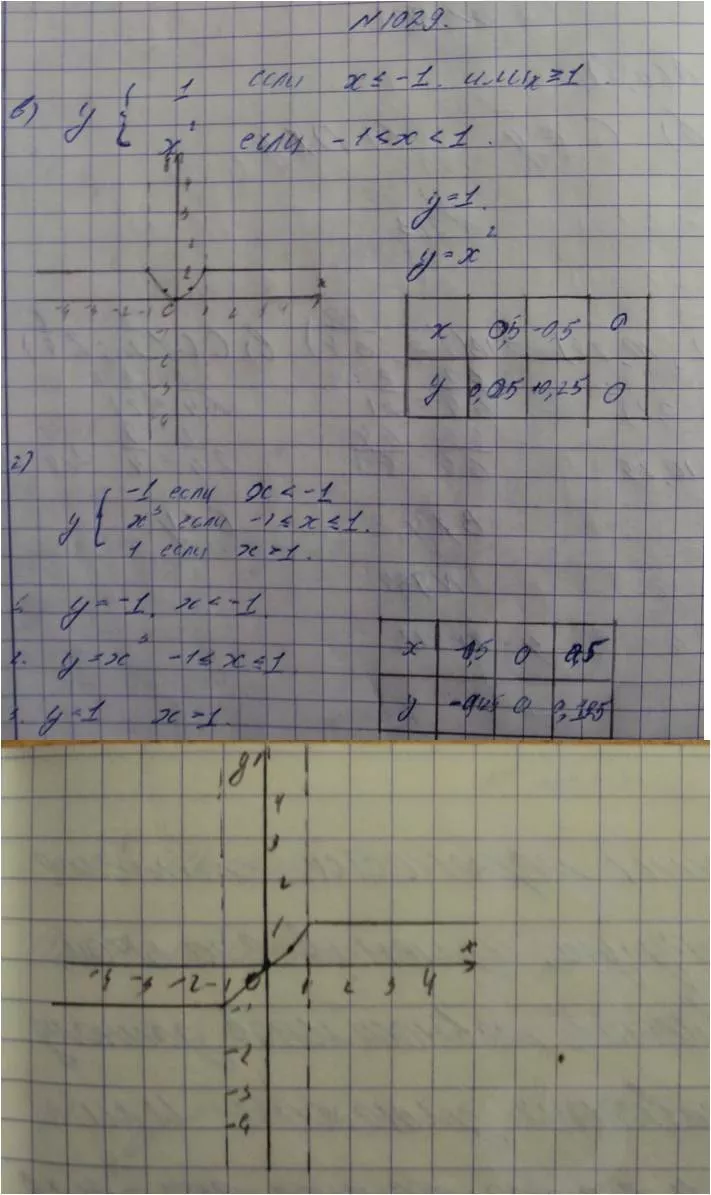 N1029.
в) y { 1 если x ≤ -1 или x ≥ 1.
x² если -1 < x < 1.
y = 1.
y = x²
4
3
2
x
-4 -3 -2 -1 0 1 2 3 4
-2
-3
-4
x 0,5 -0,5 0
y 0,25 0
г)
y { -1 если x < -1
x³ если -1 ≤ x ≤ 1.
1 если x > 1.
1. y = -1, x < -1
2. y = x³ -1 ≤ x ≤ 1
3. y = 1 x > 1.
x -0,5 0 0,5
y 0 0,125
y
4
3
2
1
x
-4 -3 -2 -1 0 1 2 3 4
-1
-2
-3
-4